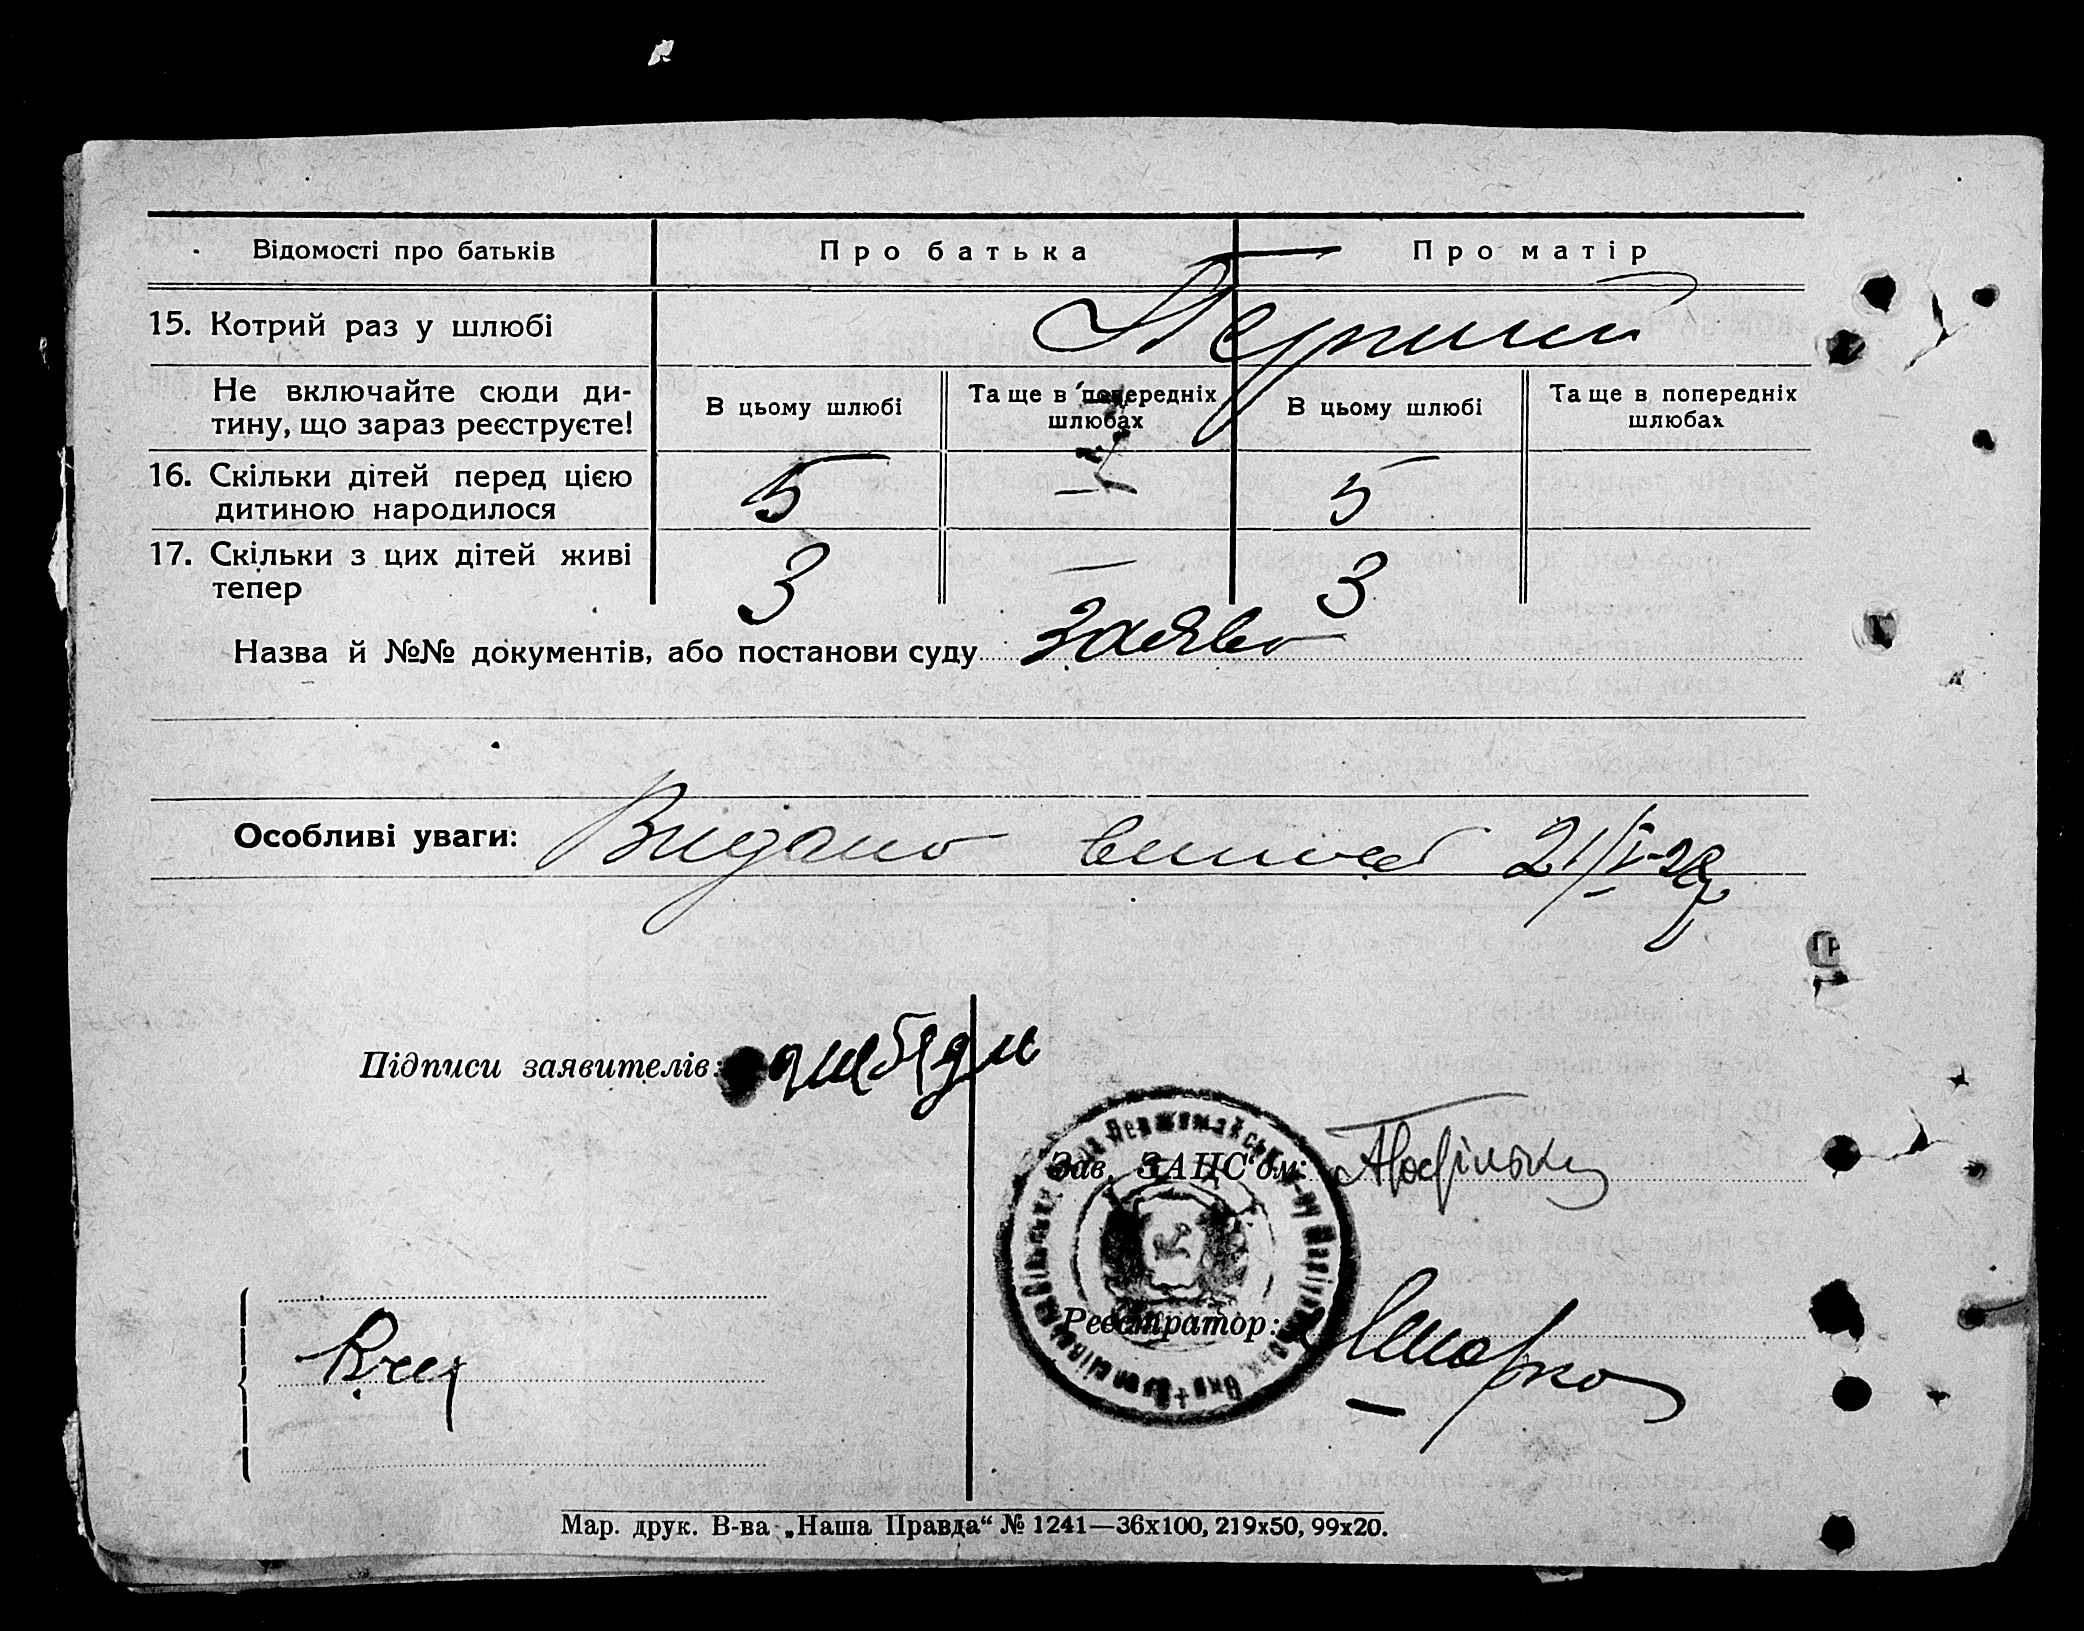 Відомості про батьків Про батька Про матір
15. Котрий раз у шлюбі Перший
Не включайте сюди ди- В цьому шлюбі Та ще в попередніх В цьому шлюбі Та ще в попередніх
тину, що зараз реєструєте! шлюбах шлюбах
16. Скільки дітей перед цією 5 — 5
дитиною народилося
17. Скільки з цих дітей живі 3 — 3
тепер
Назва й №№ документів, або постанови суду Заява
Особливі уваги: Видано випись 21/I-28р
Підписи заявителів:
Зав. ЗАЦС'ом:
Реєстратор:
Мар. друк. В-ва „Наша Правда“ № 1241—36х100, 219х50, 99х20.